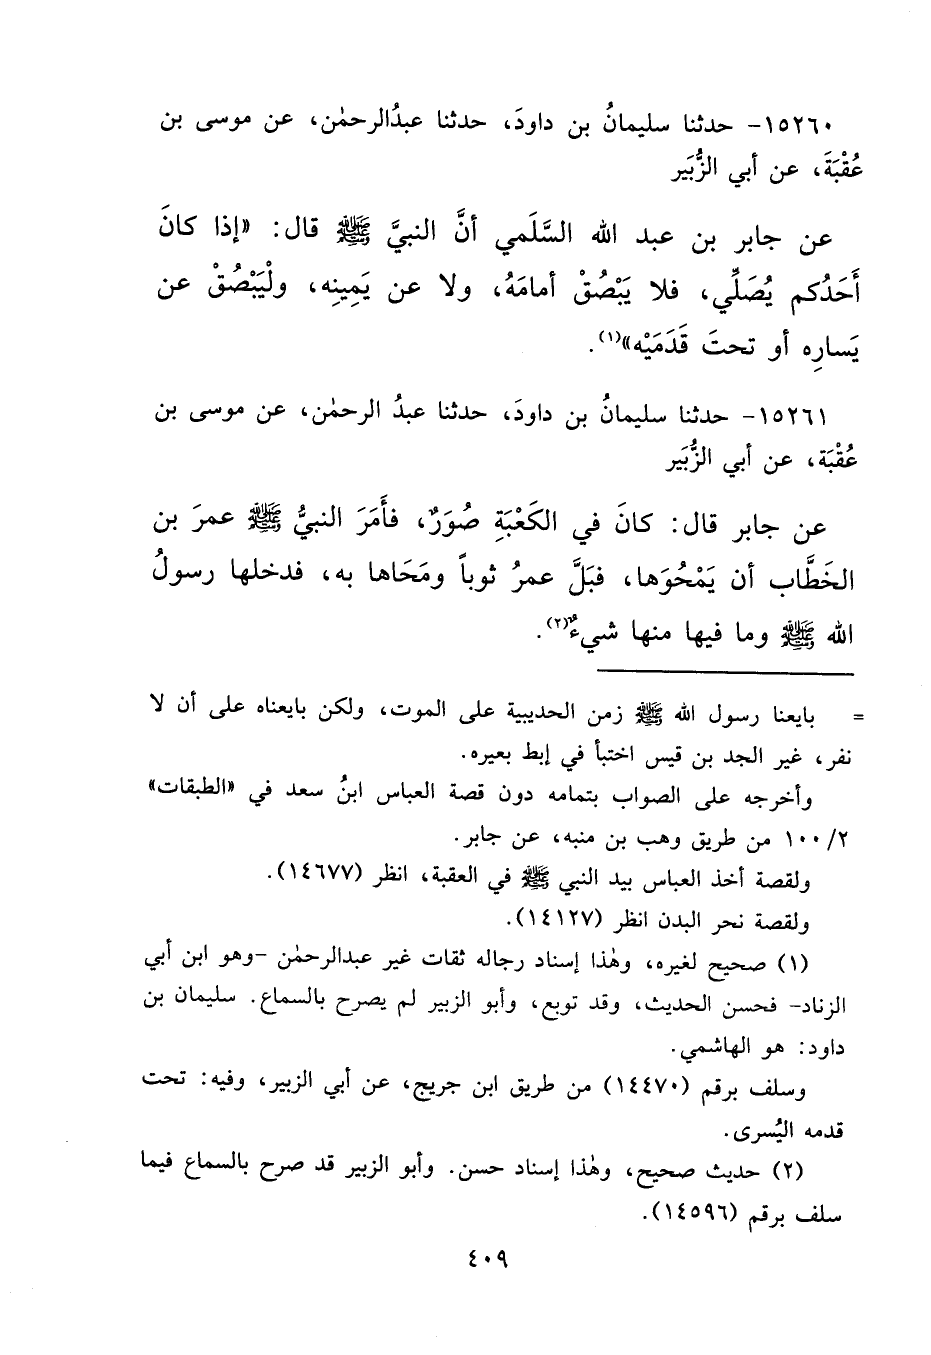 ١٥٢٦٠- حدثنا سليمانُ بن داودَ، حدثنا عبدُالرحمٰن، عن موسى بن
عُقْبَةَ، عن أبي الزُّبَير
عن جابر بن عبد الله السَّلَمي أنَّ النبيَّ ﷺ قال: «إذا كانَ
أَحَدُكم يُصَلِّي، فلا يَبْصُقْ أمامَهُ، ولا عن يَمِينِه، ولْيَبْصُقْ عن
يَسارِه أو تحتَ قَدَمَيْه»(١).
١٥٢٦١- حدثنا سليمانُ بن داودَ، حدثنا عبدُ الرحمٰن، عن موسى بن
عُقْبَة، عن أبي الزُّبَير
عن جابر قال: كانَ في الكَعْبَةِ صُوَرٌ، فأَمَرَ النبيُّ ﷺ عمرَ بن
الخَطَّاب أن يَمْحُوَها، فبَلَّ عمرُ ثوباً ومَحَاها به، فدخلها رسولُ
الله ﷺ وما فيها منها شيءٌ(٢).
= بايعنا رسول الله ﷺ زمن الحديبية على الموت، ولكن بايعناه على أن لا
نفر، غير الجد بن قيس اختبأ في إبط بعيره.
وأخرجه على الصواب بتمامه دون قصة العباس ابنُ سعد في «الطبقات»
٢/ ١٠٠ من طريق وهب بن منبه، عن جابر.
ولقصة أخذ العباس بيد النبي ﷺ في العقبة، انظر (١٤٦٧٧).
ولقصة نحر البدن انظر (١٤١٢٧).
(١) صحيح لغيره، وهٰذا إسناد رجاله ثقات غير عبدالرحمٰن -وهو ابن أبي
الزناد- فحسن الحديث، وقد توبع، وأبو الزبير لم يصرح بالسماع. سليمان بن
داود: هو الهاشمي.
وسلف برقم (١٤٤٧٠) من طريق ابن جريج، عن أبي الزبير، وفيه: تحت
قدمه اليُسرى.
(٢) حديث صحيح، وهٰذا إسناد حسن. وأبو الزبير قد صرح بالسماع فيما
سلف برقم (١٤٥٩٦).
٤٠٩